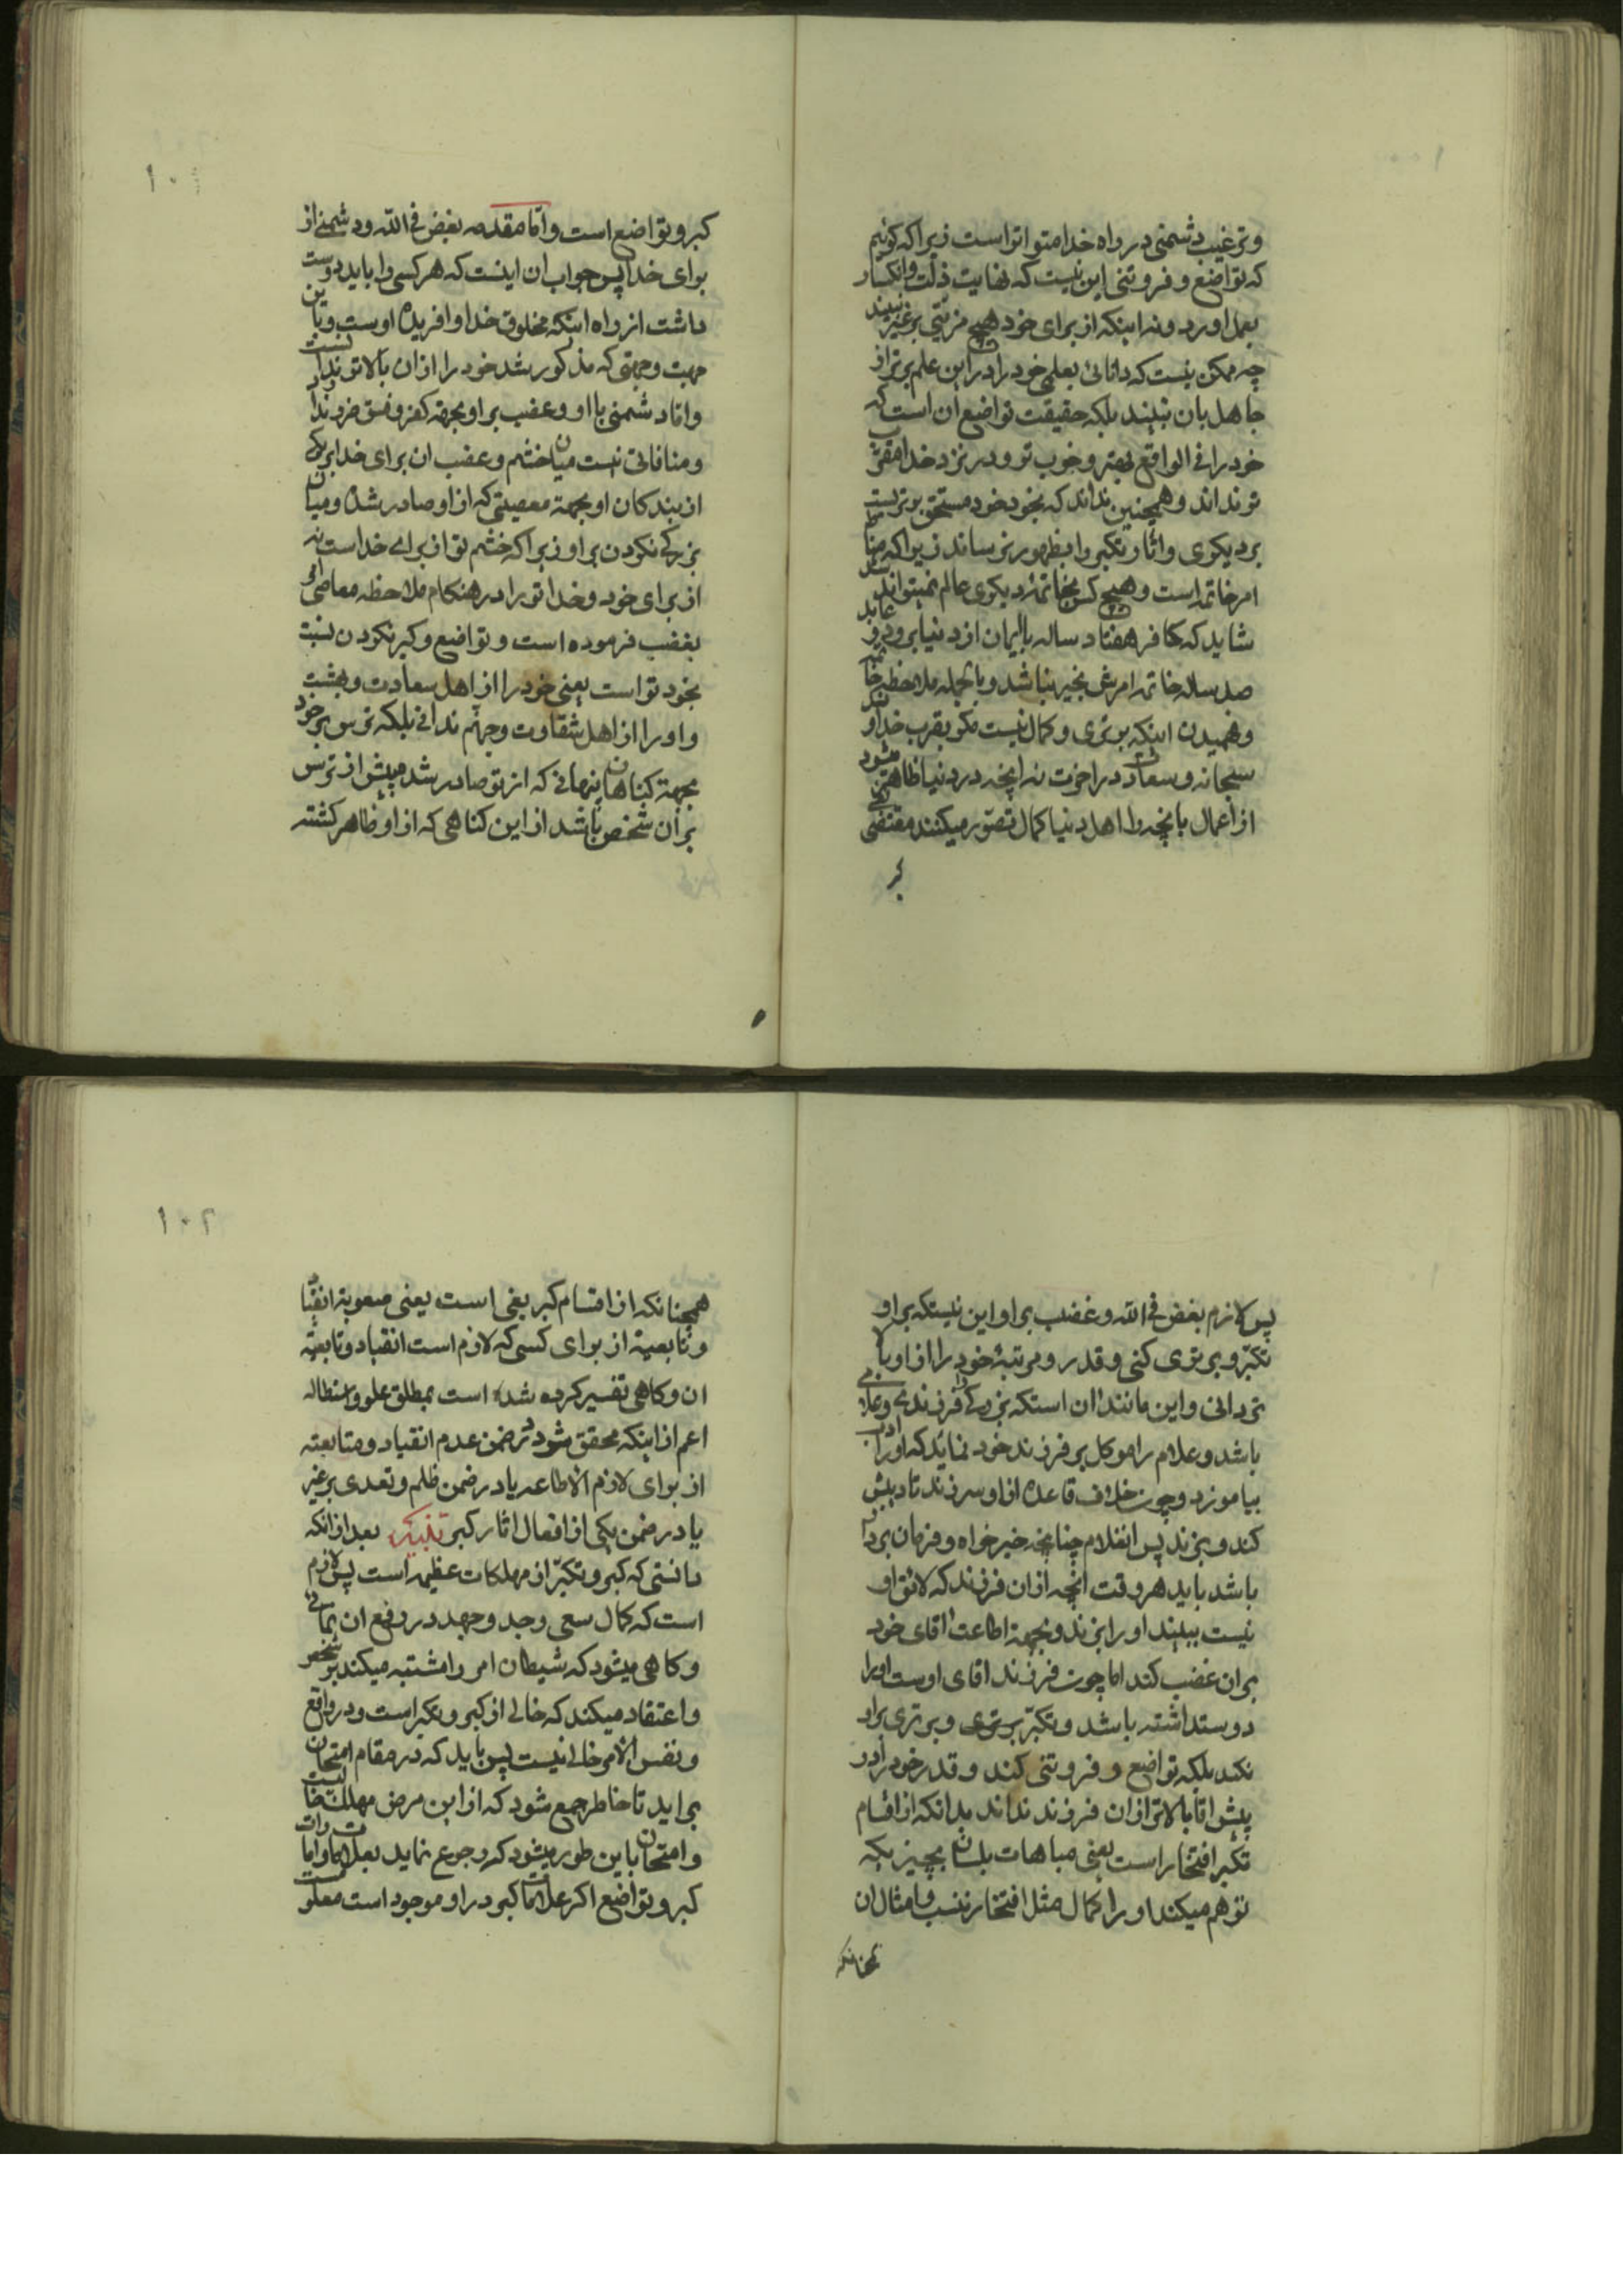 وترغیب دشمنی در راه خدا متواتر است زیرا که کوئیم
که تواضع و فروتنی این نیست که نهایت ذلت وانکسار
بعمل اورد ونه اینکه از برای خود هیچ مزیتی بر غیر نبیند
چه ممکن نیست که دانائی بعلمی خود را در این علم برتر از
جاهل بان نبیند بلکه حقیقت تواضع ان است که
خود را فی الواقع بهتر و خوب تر و در نزد خدا مقرب
تر نداند و همچنین نداند که بخود خود مستحق برتریست
بر دیکری واثار وتکبر را بظهور نرساند زیرا که مناط
امر خاتمه است و هیچ کس بخاتمه دیکری عالم نمیتواند شد
شاید که کافر هفتاد ساله با ایمان از دنیا برود و عابد
صد ساله خاتمه امرش بخیر نباشد و بالجمله ملاحظه خاتمه
وفهمیدن اینکه برتری و کمال نیست مکر بقرب خداوند
سبحانه و سعادت در اخرت نه انچه در دنیا ظاهر میشود
از اعمال یا انچه را اهل دنیا کمال تصور میکنند مقتضی
کبر
۱۰۱
کبر و تواضع است واما مقدمه بغض فی الله ودشمنی از
برای خدا پس جواب ان اینست که هر کسی را باید دوست
داشت از راه اینکه مخلوق خدا و افریده اوست وباین
جهت وجهتی که مذکور شد خود را از ان بالاتر ندانست
واما دشمنی با او وغضب بر او بجهة کفر وفسق ضرر ندارد
ومنافاتی نیست میان خشم وغضب ان برای خدا بر یکی
از بندکان او بجهة معصیتی که از او صادر شده ومیان
بزرکی نکردن بر او زیرا که خشم تو از برای خدا است نه
از برای خود وخدا تو را در هنکام ملاحظه معاصی امر
بغضب فرموده است و تواضع وکبر نکردن نسبت
بخود تو است یعنی خود را از اهل سعادت وبهشت
و او را از اهل شقاوت وجهنم ندانی بلکه ترس بر خود
بجهة کناهان پنهانی که از تو صادر شد میش از ترس
بر ان شخص باشد از این کناهی که از او ظاهر کشته
پس لازم بغض فی الله وغضب بر او این نیستکه بر او
تکبر و برتری کنی و قدر ومرتبه خود را از او بالا
تر دانی واین مانند ان استکه بزرکی را فرزندی وغلامی
باشد وغلام را موکل بر فرزند خود نماید که او را اداب
بیاموزد و چون خلاف قاعده از او سر زند تادیبش
کند و بزند پس انغلام چنانچه خیر خواه و فرمان بردار
باشد باید هر وقت انچه از ان فرزند که لائق او
نیست ببیند او را بزند وبجهة اطاعت اقای خود
بر ان غضب کند اما چون فرزند اقای اوست او را
دوستداشته باشد وتکبر برتری وبرتری بر او
نکند بلکه تواضع و فروتنی کند و قدر خود را در
پیش اقا بالاتر از ان فرزند نداند بدانکه از اقسام
تکبر افتخار است یعنی مباهات بلسان بچیزیکه
توهم میکند او را کمال مثل افتخار بنسب وامثال ان
همچنانکه
۱۰۲
همچنانکه از اقسام کبر بغی است یعنی صعوبة انقیاد
و تابعیة از برای کسی که لازم است انقیاد و تابعیة
ان وکاهی تفسیر کرده شده است بمطلق علو و استطاله
اعم از اینکه محقق شود در ضمن عدم انقیاد و متابعته
از برای لازم الاطاعه یا در ضمن ظلم وتعدی بر غیر
یا در ضمن یکی از افعال اثار کبر تنبیه بعد از انکه
دانستی که کبر وتکبر از مهلکات عظیمه است پس لازم
است که کمال سعی وجد وجهد در رفع ان نمائی
وکاهی میشود که شیطان امر را مشتبه میکند بر شخص
واعتقاد میکند که خالی از کبر وتکبر است ودر واقع
ونفس الامر خالی نیست پس باید که در مقام امتحان
بر اید تا خاطر جمع شود که از این مرض مهلک خالیست
وامتحان باین طور میشود که رجوع نماید بعلامات وامارات
کبر وتواضع اکر علامات کبر در او موجود است معلوم